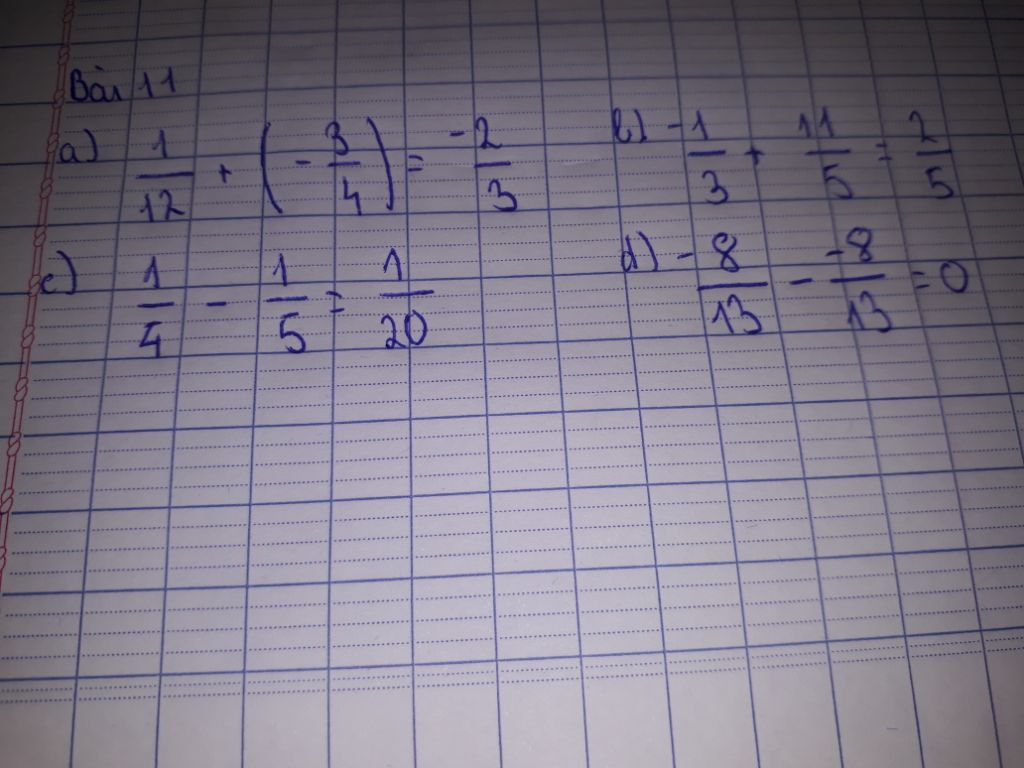 Bài 11
a) 1/12 + (-3/4) = -2/3 b) -1/3 + 11/5 = 2/5
c) 1/4 - 1/5 = 1/20 d) -8/13 - -8/13 = 0